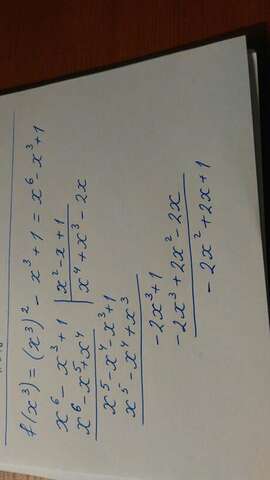 f(x³) = (x³)² - x³ + 1 = x⁶ - x³ + 1
x⁶ - x³ + 1 | x² - x + 1
x⁶ - x⁵ + x⁴ | x⁴ + x³ - 2x
x⁵ - x⁴ - x³ + 1
x⁵ - x⁴ + x³
-2x³ + 1
-2x³ + 2x² - 2x
-2x² + 2x + 1